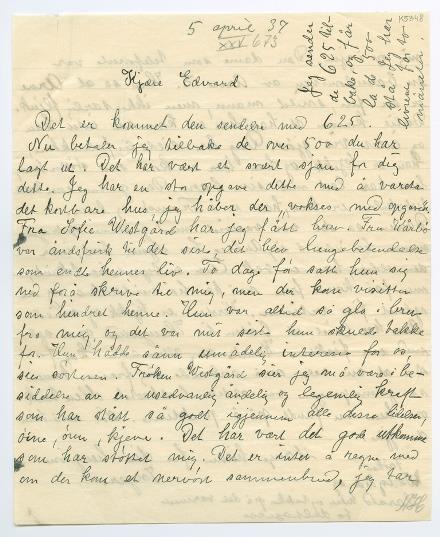 5 april 37
XXV 673
K5348
Jeg sender
de 625 til-
bake, og får
la de 500
stå jeg har
livrem for to
måneder.
Kjære Edvard
Det er kommet den sendelse med 625.
Nu betaler jeg tilbake de over 500 du har
lagt ut. Det har vært et svært sjau for dig
dette. Jeg har en stor opgave dette med å vareta
det kostbare hus, jeg håber der vokses med opgaven.
Fra Sofie Westgård har jeg fått brev. Fru
var åndsfrisk til det siste, det blev lungebetendelse
som endte hennes liv. To dage før satt hun sig
ned for å skrive til mig, men der kom visitter
som hindret henne. Hun var altid så glad i brev
fra mig, og det var mit siste hun skulde takke
for. Hun hadde sånn umådelig interesse for os,
sier søsteren. Frøken Westgård sier jeg må være i be-
siddelse av en usedvanlig åndelig og legemlig kraft
som har stått så godt igjennem alle disse lidelser,
øine, øren, kjeve. Det har vært det gode utkomme
som har støttet mig. Det er intet å regne med
om der kom et nervøst sammenbrud, jeg har